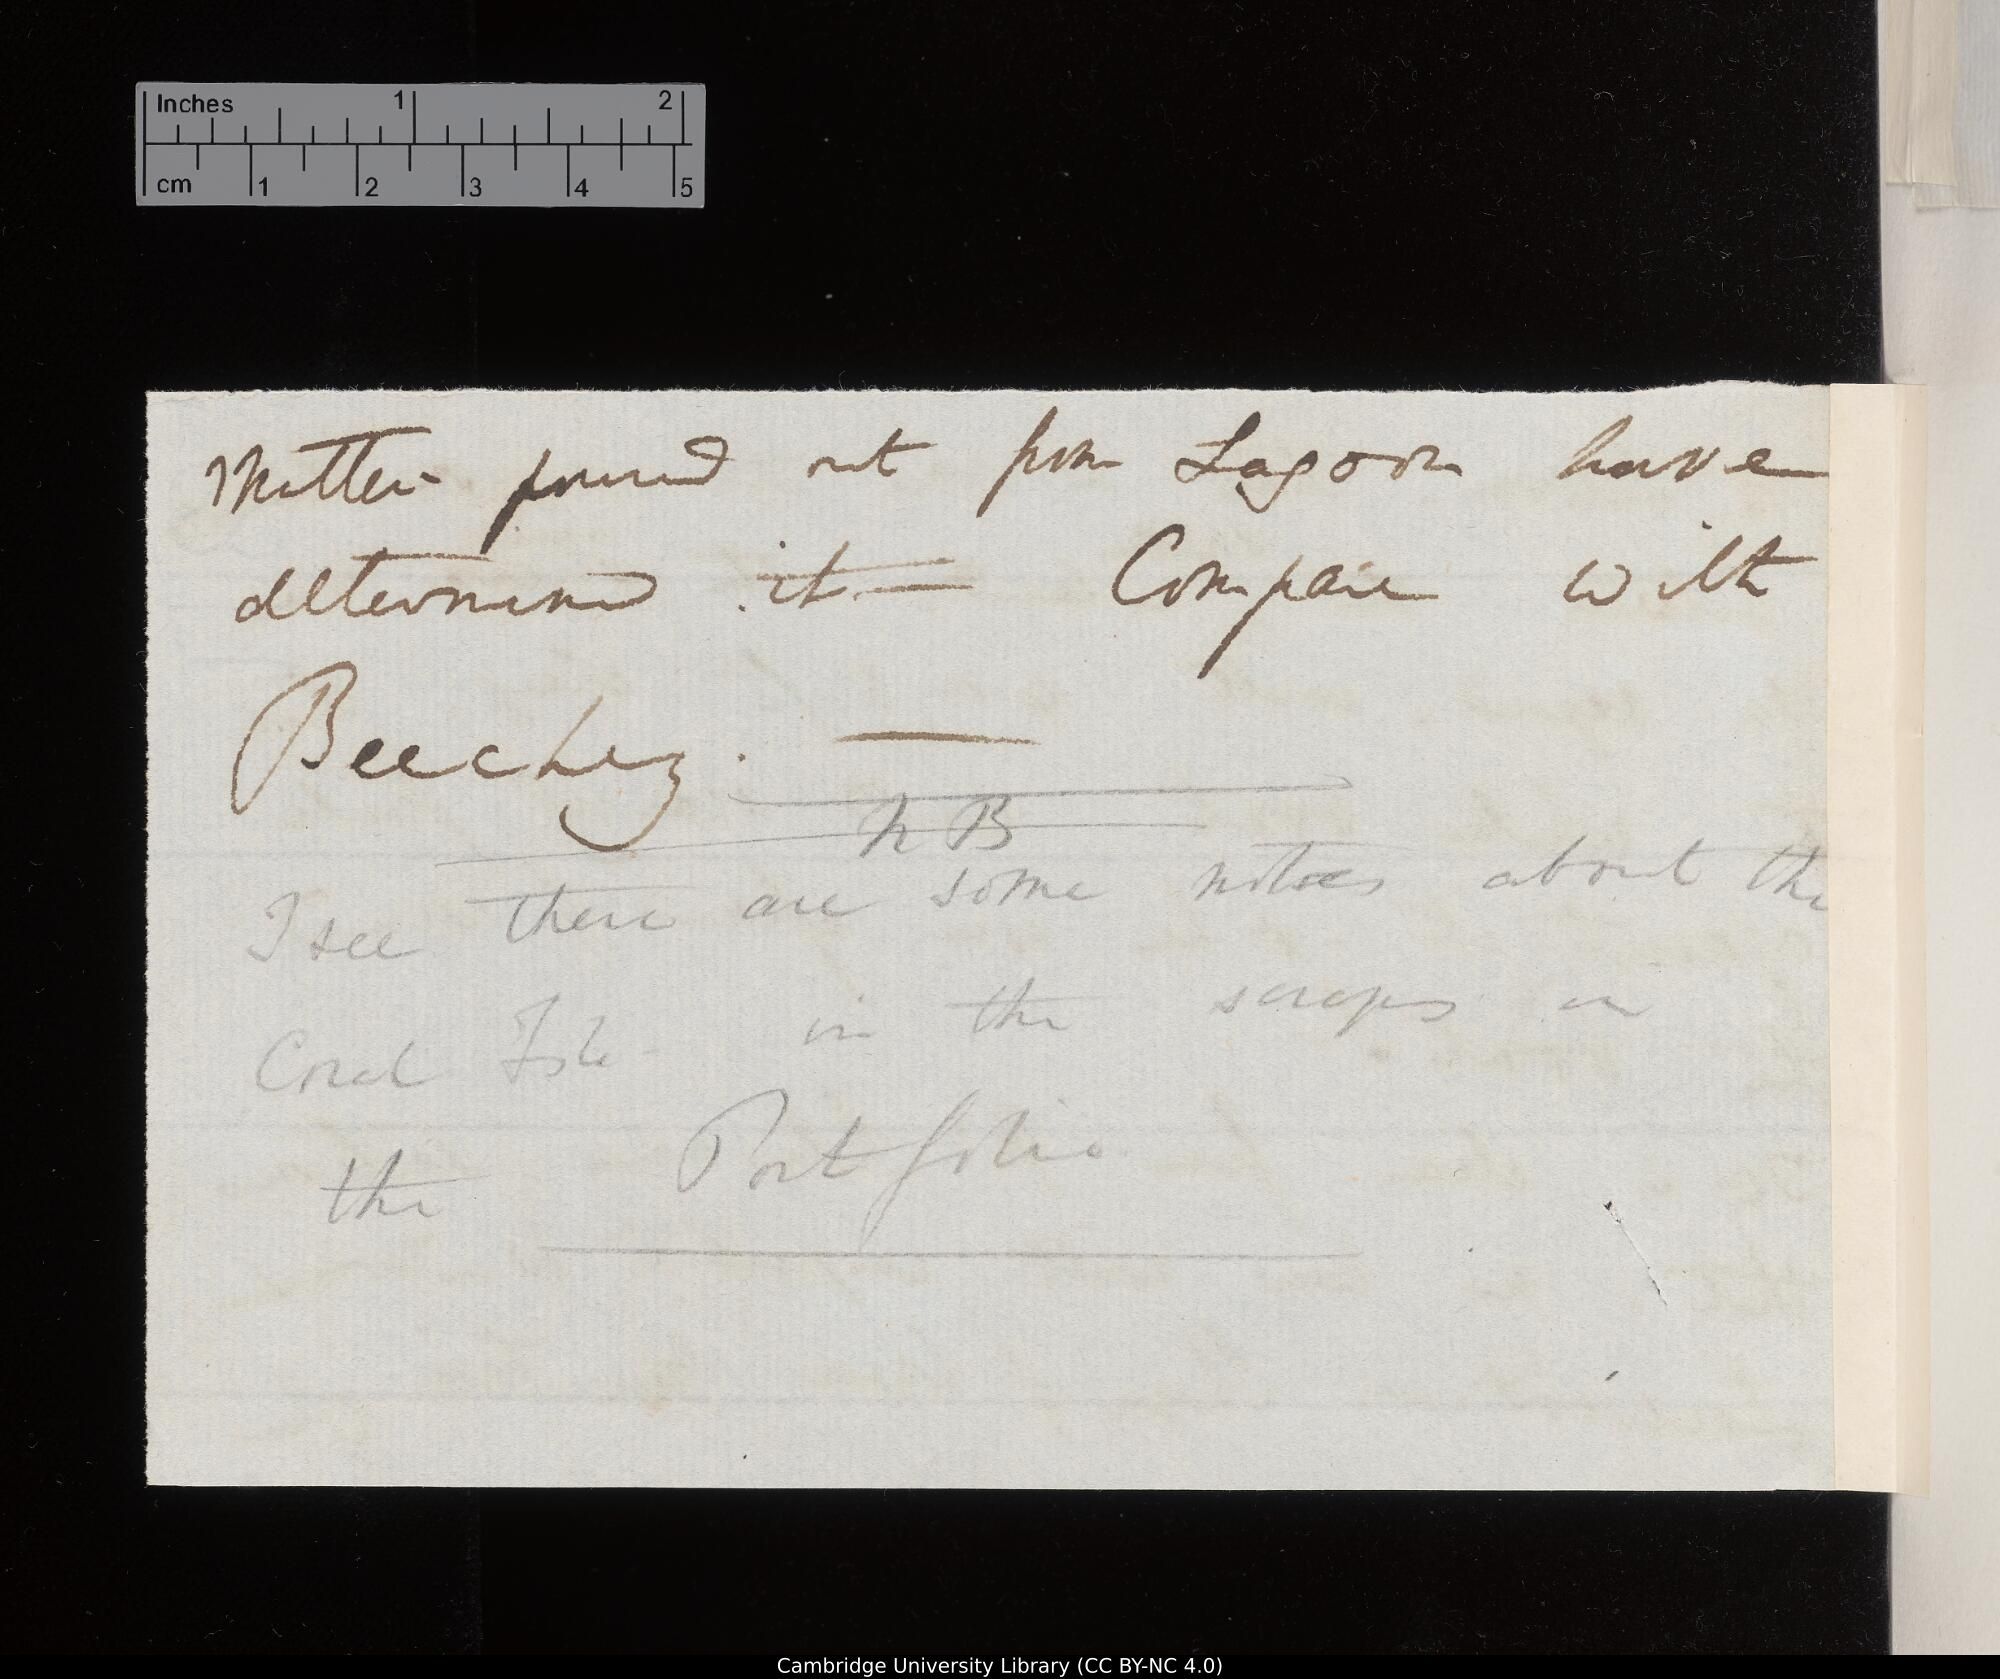 Inches 1 2
cm 1 2 3 4 5
matter poured out from Lagoon have
determined it — Compare with
Beechey. —
NB
I see there are some notes about the
Coral Isld- in the scraps in
the Portfolio
Cambridge University Library (CC BY-NC 4.0)